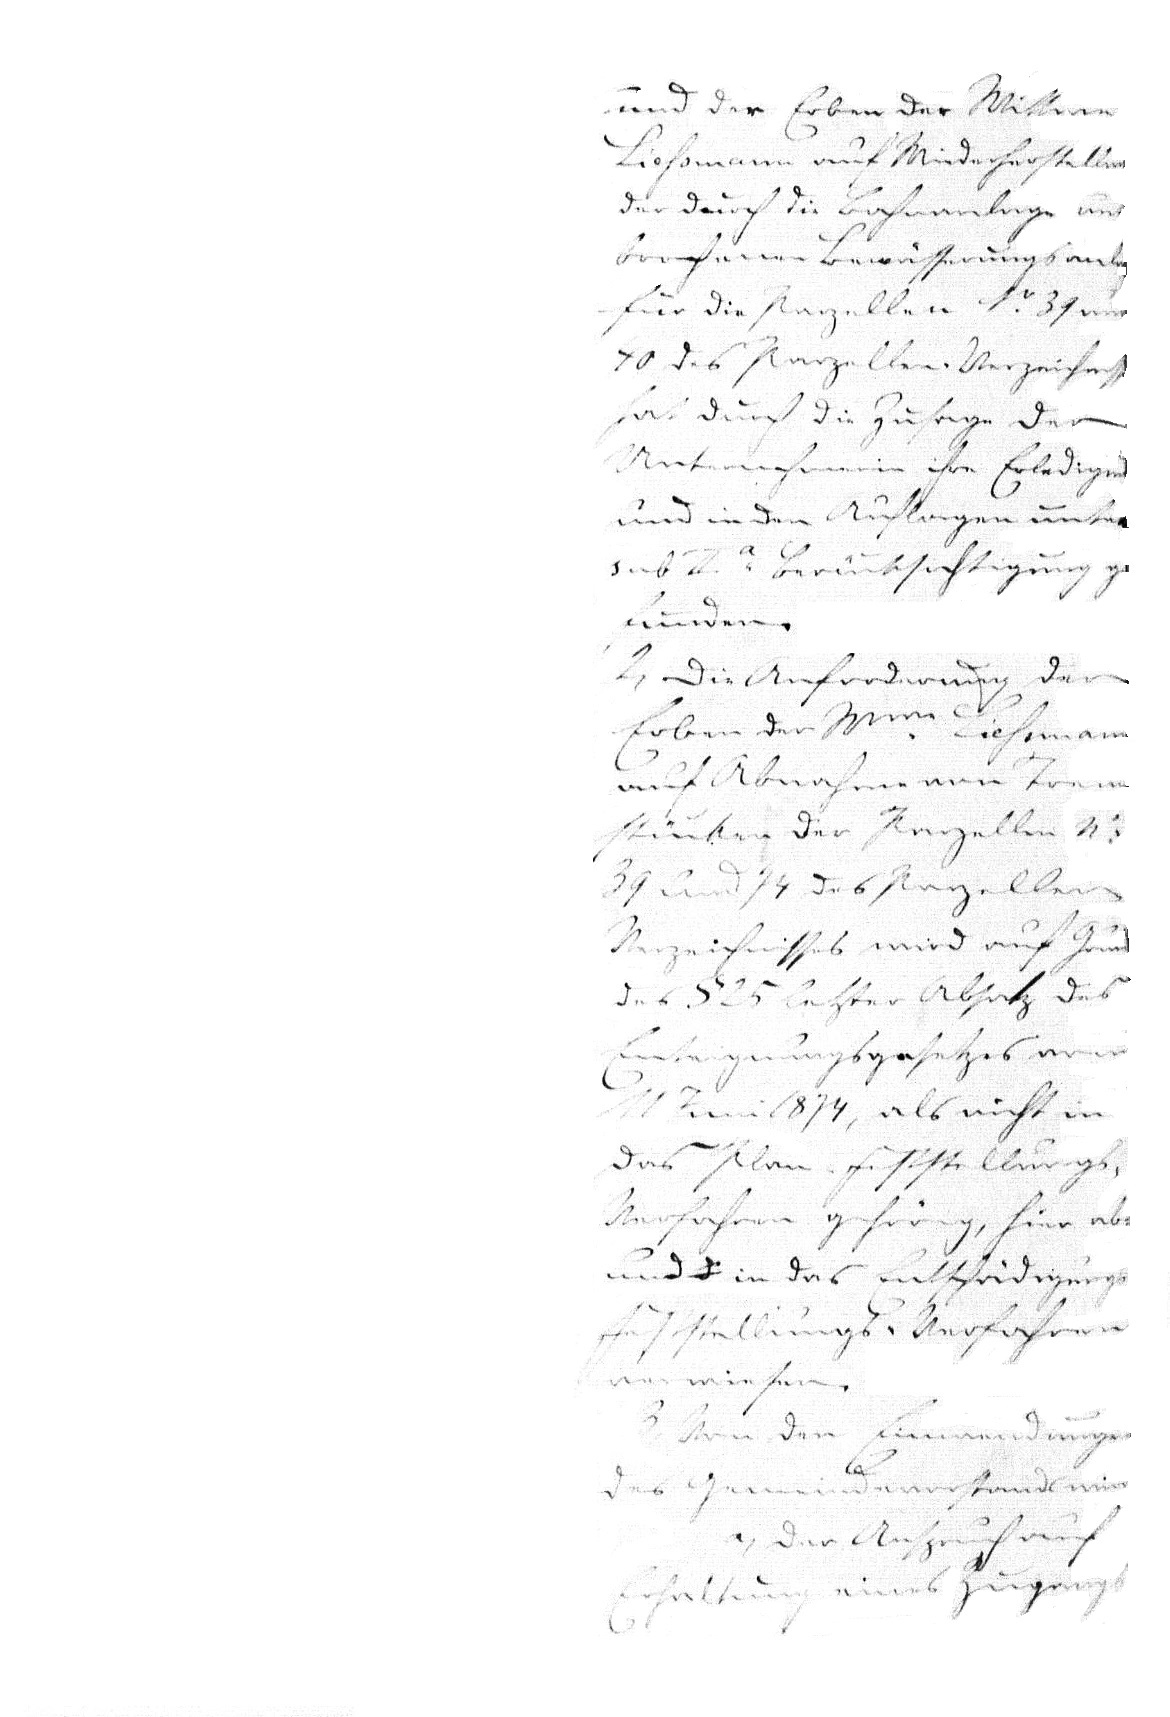 und der Erben der Wittwe
Liehsmann auf Wiederherstellun
der durch die Bahnanlage un
brochenen Bewässerungsanlag
für die Parzellen Nr. 39 un
40 des Parzellen-Verzeichniss
hat durch die Zusage der
Unternehmerin ihre Erledigun
und in den Auflagen unter
sub II.a Berücksichtigung ge
funden.
2, Die Anforderung der
Erben der Wwe. Liehsmann
auf Abnahme von Trenn
stücken der Parzellen No.
39 und 74 des Parzellen
Verzeichnisses wird auf Grund
des § 25 letzter Absatz des
Enteignungsgesetzes vom
11 Juni 1874, als nicht in
das Plan-Feststellungs-
Verfahren gehörig, hier abs
und in das Entschädigungs
feststellungs-Verfahren
verwiesen.
3, Von den Einwendungen
des Gemeindevorstands wir
a, der Anspruch auf
Erhaltung eines Zugangs